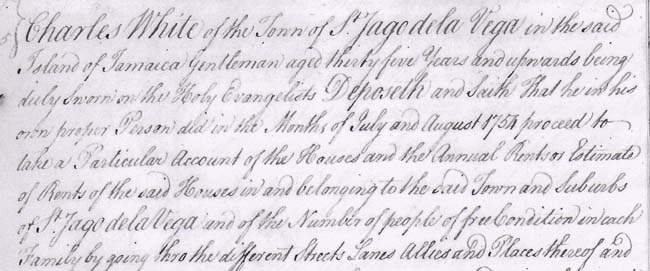 Charles White of the Town of St. Jago dela Vega in the said
Island of Jamaica Gentleman aged thirty five Years and upwards being
duly Sworn on the Holy Evangelists Deposeth and Saith That he in his
own proper Person did in the Months of July and August 1754 proceed to
take a Particular Account of the Houses and the Annual Rents or Estimate
of Rents of the said Houses in and belonging to the said Town and Suburbs
of St. Jago dela Vega and of the Number of people of free Condition in each
Family by going thro the different Streets Lanes Allies and Places thereof and